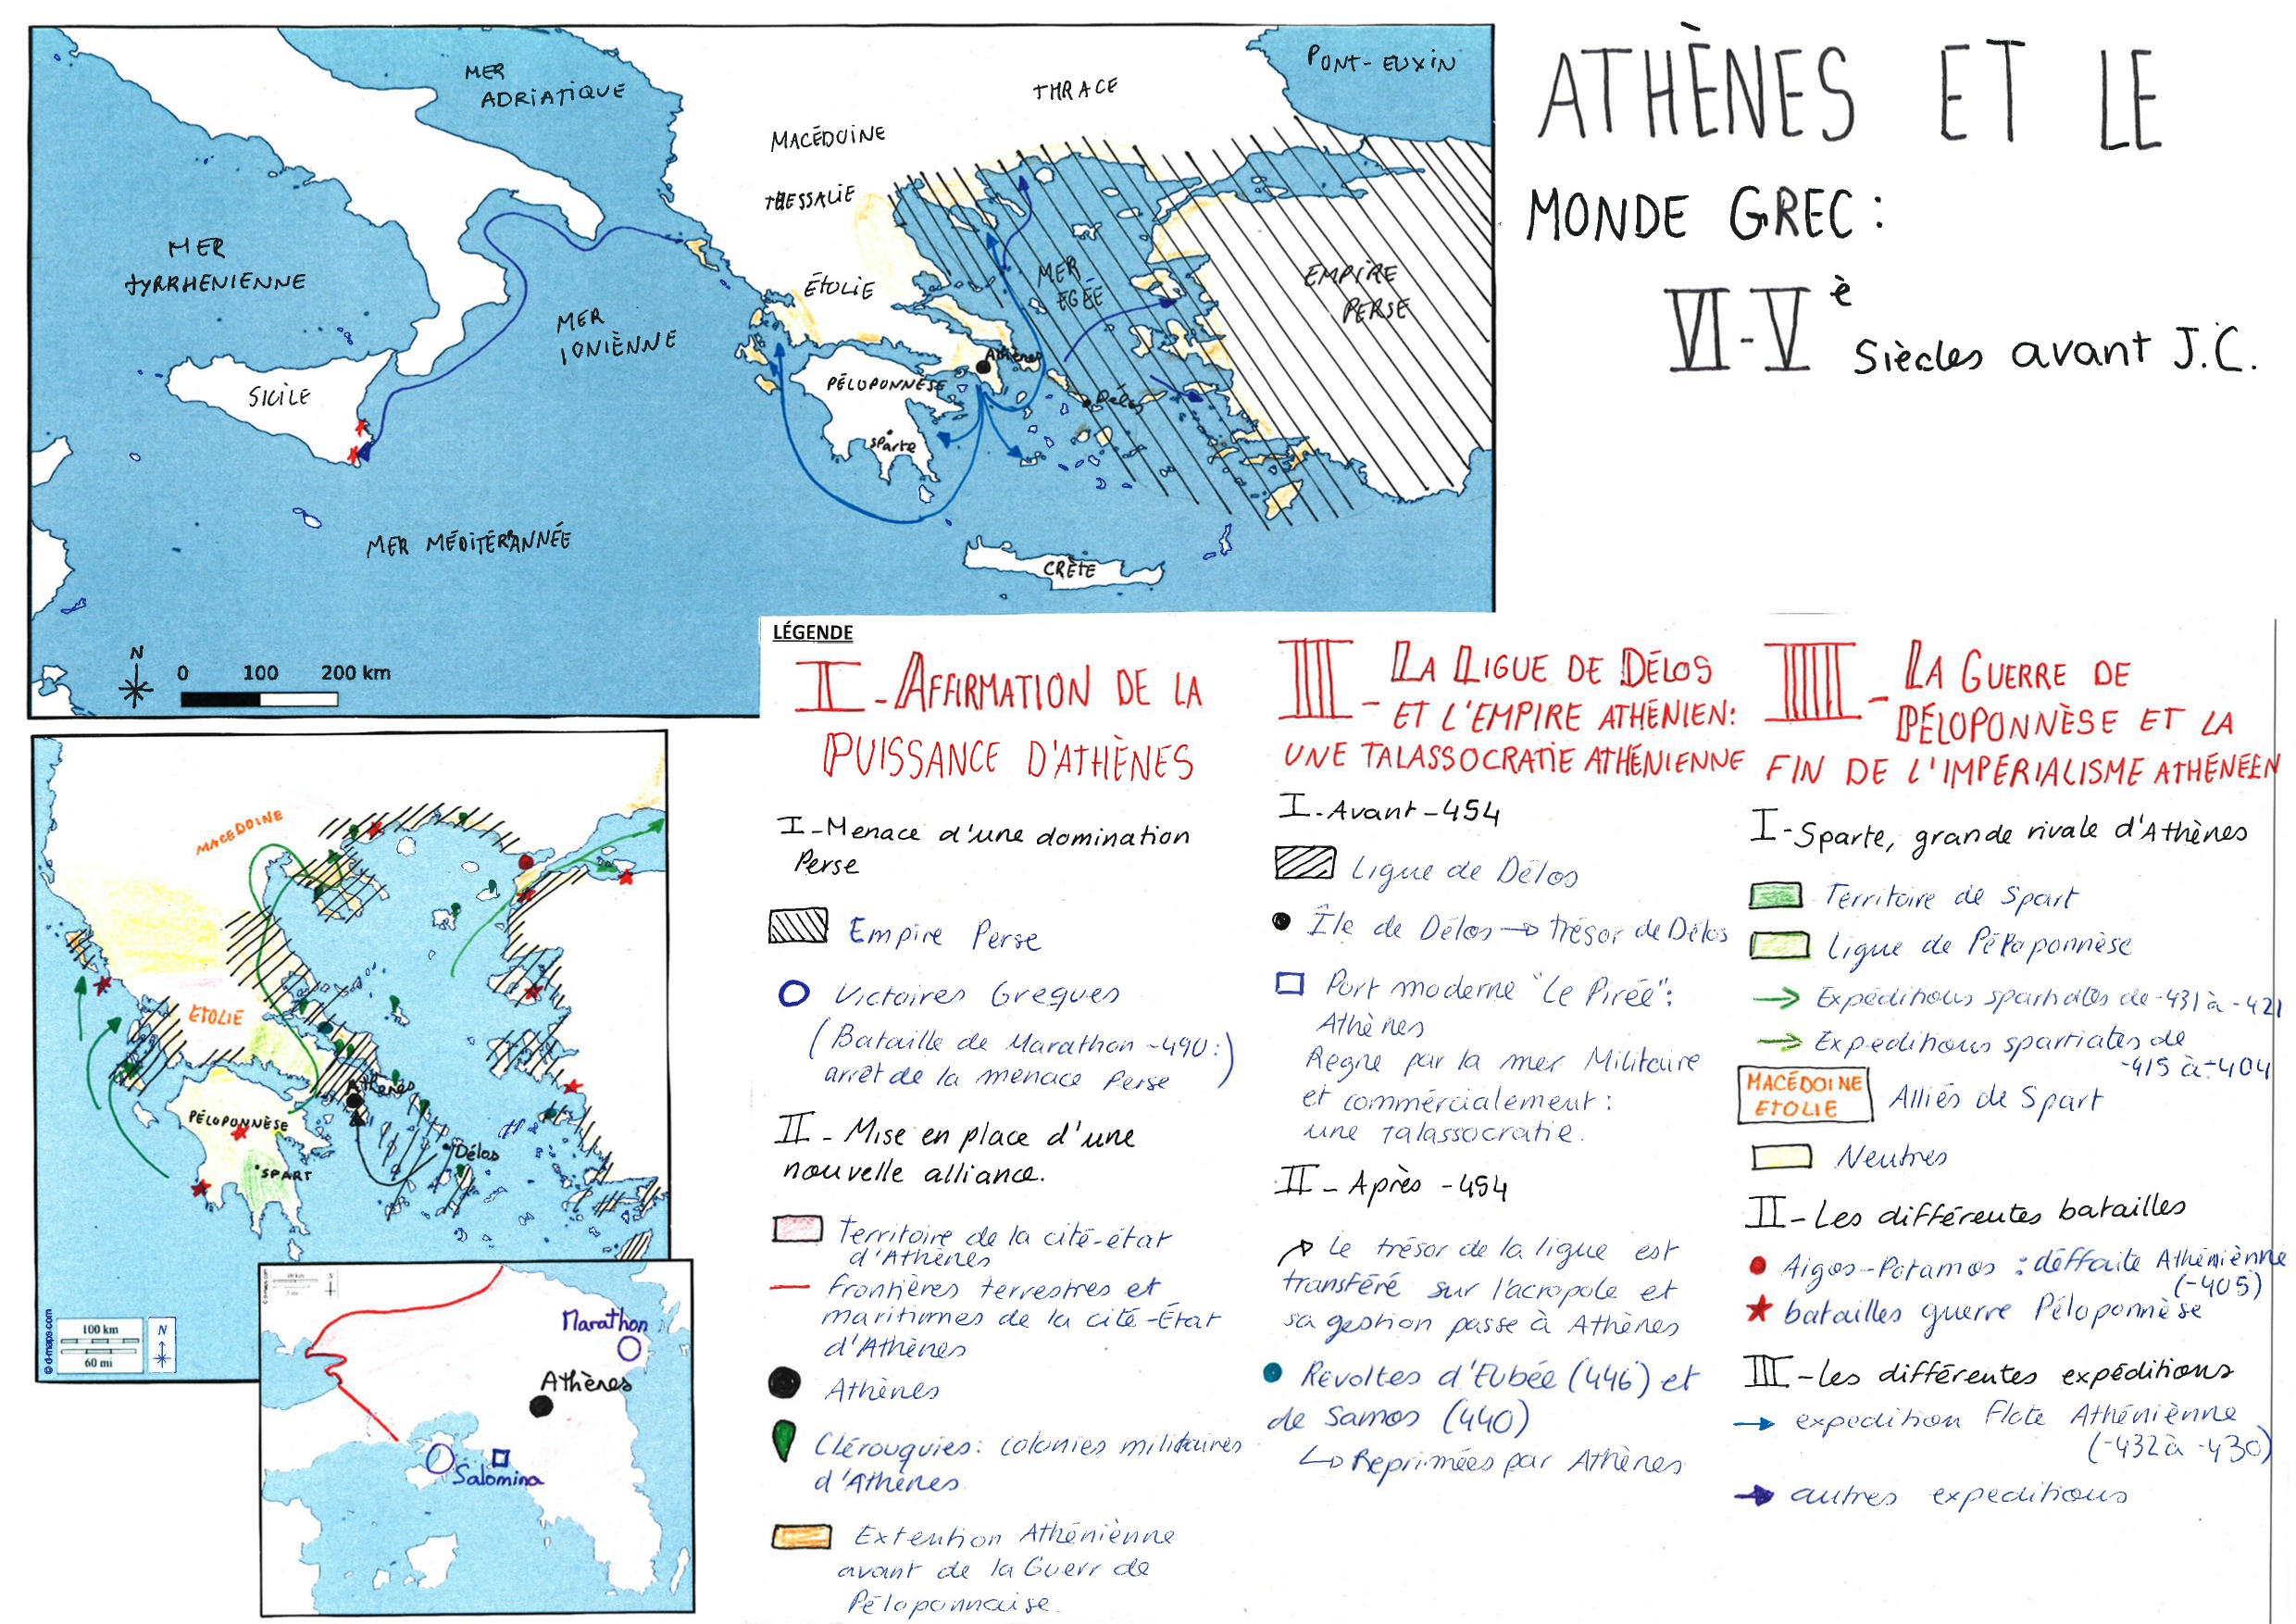 ATHÈNES ET LE
MONDE GREC:
VI-Vè Siècles avant J.C.
MER
ADRIATIQUE
PONT-EUXIN
THRACE
MACÉDOINE
THESSALIE
MER
TYRRHENIENNE
MER
IONIÈNNE
ÉTOLIE
MER
EGÉE
EMPIRE
PERSE
Athènes
PÉLOPONNÈSE
Délos
SICILE
Sparte
MER MÉDITÉRANNÉE
CRÈTE
N
0 100 200 km
MACEDOINE
ETOLIE
Athenes
PÉLOPONNÈSE
Délos
SPART
© d-maps.com
100 km
60 mi
N
Marathon
Athères
Salomina
LÉGENDE
I - AFFIRMATION DE LA
PUISSANCE D'ATHÈNES
I-Menace d'une domination
Perse
Empire Perse
Victoires Greques
(Bataille de Marathon -490:)
arrêt de la menace Perse
II - Mise en place d'une
nouvelle alliance.
Territoire de la cité-état
d'Athènes
frontières terrestres et
maritimmes de la cité-État
d'Athènes
Athènes
Clérouquies: colonies militaires
d'Athènes.
Extention Athéniènne
avant de la Guerr de
Péloponnaise.
II - LA LIGUE DE DÉLOS
ET L'EMPIRE ATHÉNIEN:
UNE TALASSOCRATIE ATHÉNIENNE
I-Avant -454
Ligue de Délos
Île de Délos → trésor de Délos
Port moderne "Le Pirée":
Athènes
Regne par la mer Militaire
et commércialement:
une Talassocratie.
II - Après -454
Le trésor de la ligue est
transféré sur l'acropole et
sa gestion passe à Athènes
Révoltes d'Eubée (446) et
de Samos (440)
↳ Reprimées par Athènes
III - LA GUERRE DE
PÉLOPONNÈSE ET LA
FIN DE L'IMPÉRIALISME ATHÉNEEN
I-Sparte, grande rivale d'Athènes
Territoire de Spart
Ligue de Péloponnèse
Expéditions spartiates de -431 à -421
Expeditions spartiates de
-415 à -404
MACÉDOINE
ETOLIE
Alliés de Spart
Neutres
II-Les différentes batailles
Aigos-Potamos : déffaite Athéniènne
(-405)
batailles guerre Péloponnèse
III-les différentes expéditions
expedition Flote Athéniènne
(-432 à -430)
autres expeditions